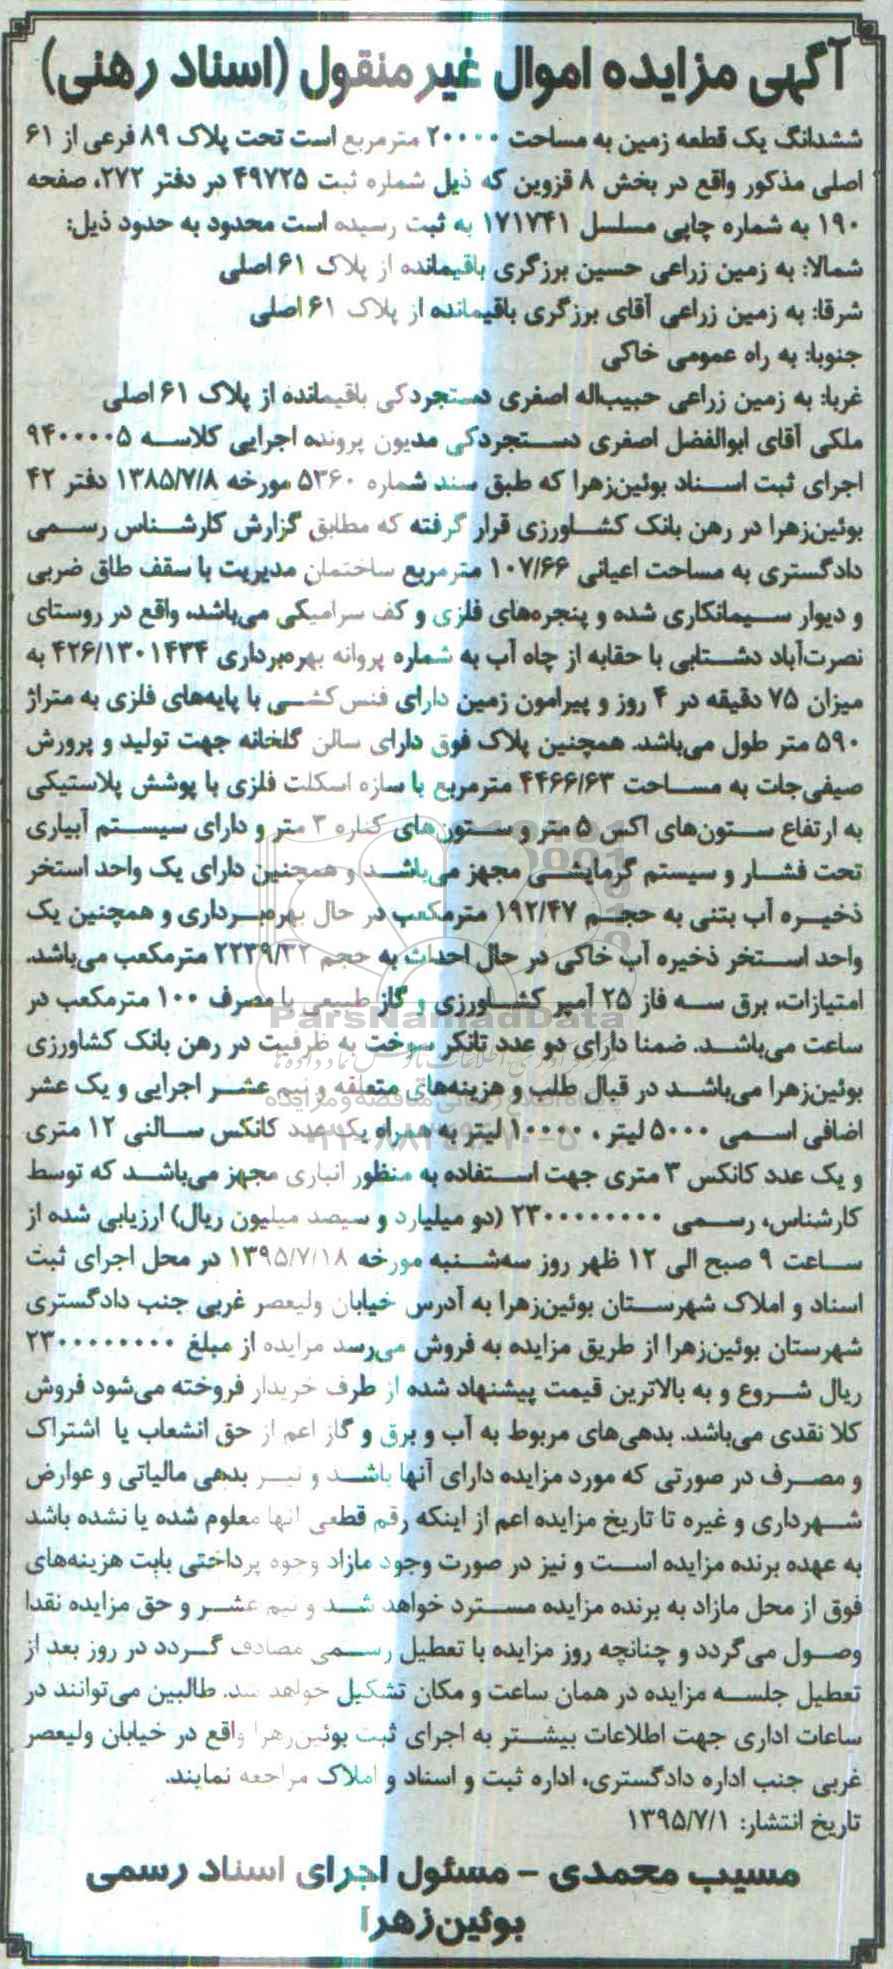 آگهی مزایده اموال غیرمنقول (اسناد رهنی)
ششدانگ یک قطعه زمین به مساحت ۲۰۰۰۰ مترمربع است تحت پلاک ۸۹ فرعی از ۶۱
اصلی مذکور واقع در بخش ۸ قزوین که ذیل شماره ثبت ۴۹۷۲۵ در دفتر ۲۷۲، صفحه
۱۹۰ به شماره چاپی مسلسل ۱۷۱۷۴۱ به ثبت رسیده است محدود به حدود ذیل:
شمالا: به زمین زراعی حسین برزگری باقیمانده از پلاک ۶۱ اصلی
شرقا: به زمین زراعی آقای برزگری باقیمانده از پلاک ۶۱ اصلی
جنوبا: به راه عمومی خاکی
غربا: به زمین زراعی حبیب‌اله اصغری دستجردکی باقیمانده از پلاک ۶۱ اصلی
ملکی آقای ابوالفضل اصغری دستجردکی مدیون پرونده اجرایی کلاسه ۹۴۰۰۰۰۵
اجرای ثبت اسناد بوئین‌زهرا که طبق سند شماره ۵۳۶۰ مورخه ۱۳۸۵/۷/۸ دفتر ۴۲
بوئین‌زهرا در رهن بانک کشاورزی قرار گرفته که مطابق گزارش کارشناس رسمی
دادگستری به مساحت اعیانی ۱۰۷/۶۶ مترمربع ساختمان مدیریت با سقف طاق ضربی
و دیوار سیمانکاری شده و پنجره‌های فلزی و کف سرامیکی می‌باشد، واقع در روستای
نصرت‌آباد دشتابی با حقابه از چاه آب به شماره پروانه بهره‌برداری ۴۲۶/۱۳۰۱۴۳۴ به
میزان ۷۵ دقیقه در ۴ روز و پیرامون زمین دارای فنس‌کشی با پایه‌های فلزی به متراژ
۵۹۰ متر طول می‌باشد. همچنین پلاک فوق دارای سالن گلخانه جهت تولید و پرورش
صیفی‌جات به مساحت ۴۴۶۶/۶۳ مترمربع با سازه اسکلت فلزی با پوشش پلاستیکی
به ارتفاع ستون‌های اکس ۵ متر و ستون‌های کناره ۳ متر و دارای سیستم آبیاری
تحت فشار و سیستم گرمایشی مجهز می‌باشد و همچنین دارای یک واحد استخر
ذخیره آب بتنی به حجم ۱۹۲/۴۷ مترمکعب در حال بهره‌برداری و همچنین یک
واحد استخر ذخیره آب خاکی در حال احداث به حجم ۲۲۳۹/۳۲ مترمکعب می‌باشد.
امتیازات، برق سه فاز ۲۵ آمپر کشاورزی و گاز طبیعی با مصرف ۱۰۰ مترمکعب در
ساعت می‌باشد. ضمنا دارای دو عدد تانکر سوخت به ظرفیت در رهن بانک کشاورزی
بوئین‌زهرا می‌باشد در قبال طلب و هزینه‌های متعلقه و نیم عشر اجرایی و یک عشر
اضافی اسمی ۵۰۰۰ لیتر، ۱۰۰۰۰ لیتر به همراه یک عدد کانکس سالنی ۱۲ متری
و یک عدد کانکس ۳ متری جهت استفاده به منظور انباری مجهز می‌باشد که توسط
کارشناس، رسمی ۲۳۰۰۰۰۰۰۰۰ (دو میلیارد و سیصد میلیون ریال) ارزیابی شده از
ساعت ۹ صبح الی ۱۲ ظهر روز سه‌شنبه مورخه ۱۳۹۵/۷/۱۸ در محل اجرای ثبت
اسناد و املاک شهرستان بوئین‌زهرا به آدرس خیابان ولیعصر غربی جنب دادگستری
شهرستان بوئین‌زهرا از طریق مزایده به فروش می‌رسد مزایده از مبلغ ۲۳۰۰۰۰۰۰۰۰
ریال شروع و به بالاترین قیمت پیشنهاد شده از طرف خریدار فروخته می‌شود فروش
کلا نقدی می‌باشد. بدهی‌های مربوط به آب و برق و گاز اعم از حق انشعاب یا اشتراک
و مصرف در صورتی که مورد مزایده دارای آنها باشد و نیز بدهی مالیاتی و عوارض
شهرداری و غیره تا تاریخ مزایده اعم از اینکه رقم قطعی آنها معلوم شده یا نشده باشد
به عهده برنده مزایده است و نیز در صورت وجود مازاد وجوه پرداختی بابت هزینه‌های
فوق از محل مازاد به برنده مزایده مسترد خواهد شد و نیم عشر و حق مزایده نقدا
وصول می‌گردد و چنانچه روز مزایده با تعطیل رسمی مصادف گردد در روز بعد از
تعطیل جلسه مزایده در همان ساعت و مکان تشکیل خواهد شد. طالبین می‌توانند در
ساعات اداری جهت اطلاعات بیشتر به اجرای ثبت بوئین‌زهرا واقع در خیابان ولیعصر
غربی جنب اداره دادگستری، اداره ثبت و اسناد و املاک مراجعه نمایند.
تاریخ انتشار: ۱۳۹۵/۷/۱
مسیب محمدی - مسئول اجرای اسناد رسمی
بوئین‌زهرا
ParsNamadData
پایگاه اطلاع رسانی مناقصه و مزایده